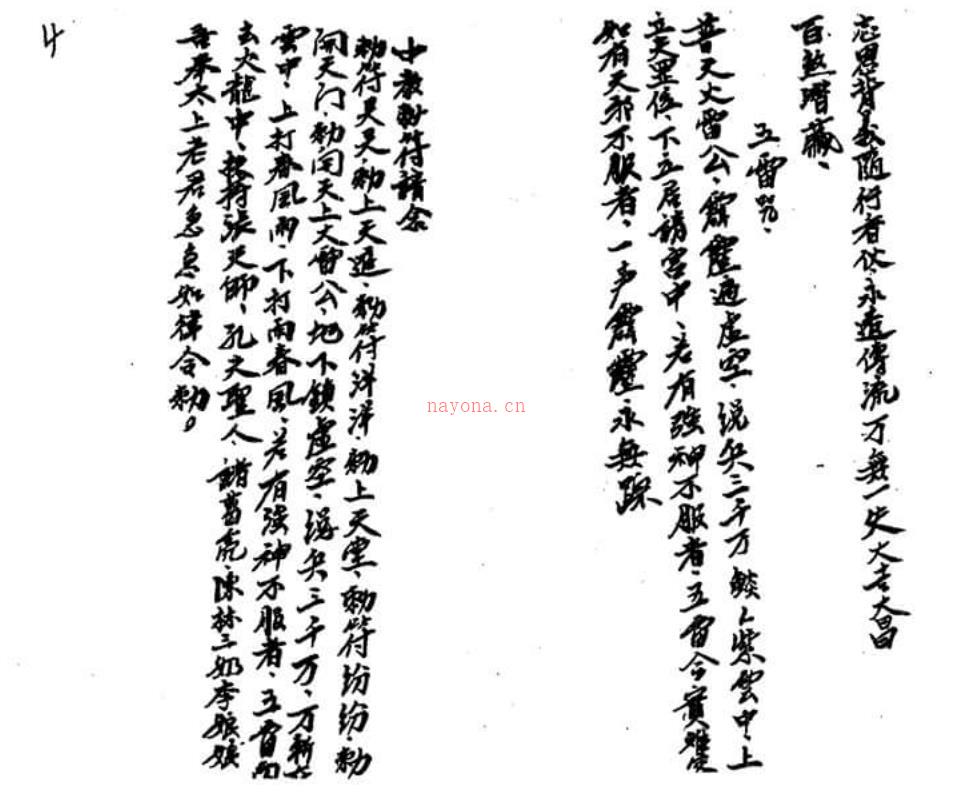 忘恩背義隨行者伙、永遠傳流万無一失大吉大昌
百煞潛藏、
五雷咒、
普天火雷公、霹靂遍虛空、統兵三千万 紫雲中、上
立天罡位、下立居諸宮中、若有強神不服者、五雷令實難
如有天邪不服者、一声霹靂永無踪
中教勅符請念
勅符灵灵、勅上天廷、勅符洋洋、勅上天堂、勅符纷纷、勅
開天门、勅開天上火雷公、地下鎖虛空、統兵三千万、万
雲中、上打春風雨、下打雨春風、若有強神不服者、五雷
去火龍中、扶持張天師、孔夫聖人、諸葛亮、陳林三奶李娘娘
吾奉太上老君急急如律令勅。
4
nayona.cn